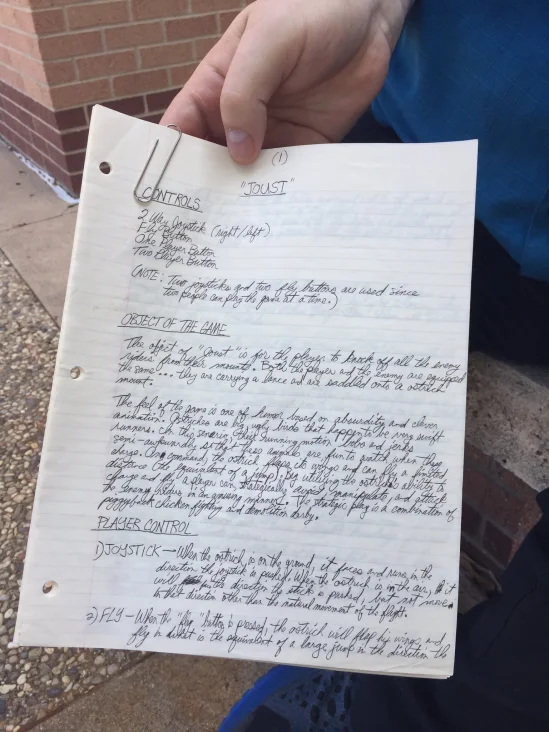 (1)
"JOUST"
CONTROLS
2 Way Joystick (right/left)
Fly Button
One Player Button
Two Player Button
(NOTE: Two joysticks and two fly buttons are used since
two people can play the game at a time.)
OBJECT OF THE GAME
The object of "Joust" is for the player to knock off all the enemy
riders from their mounts. Both the player and the enemy are equipped
the same ... they are carrying a lance and are saddled onto a ostrich
mount.
The feel of the game is one of humor based on absurdity and clever
animation. Ostriches are big ugly birds that happen to be very swift
runners. In the scenario, their running motion
semi-awkwardly so that these animals are fun to watch when they
charge. On command, the ostrich flaps its wings and can fly a limited
distance the equivalent of a jump. By utilizing the ostrich's ability to
charge and fly a player can strategically avoid, manipulate, and attack
the enemy riders in an amusing manner. The strategic play is a combination of
piggyback chicken fighting and demolition derby.
PLAYER CONTROL
1) JOYSTICK — When the ostrich is on the ground, it faces and runs in the
direction the joystick is pushed. When the ostrich is in the air, it
will face in the direction the stick is pushed, but not move
in that direction other than the natural movement of the flight.
2) FLY — When the "fly" button is pressed, the ostrich will flap his wings and
fly in is the equivalent of a large jump in the direction the